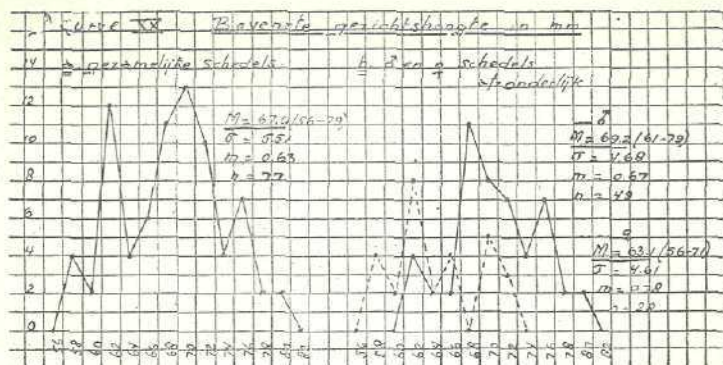 Curve XX Bovenste gezichtshoogte in mm
a gezamelijke schedels.
b. ♂ en ♀ schedels
afzonderlijk
14
12
10
8
6
4
2
0
M = 67.0 (56-79)
σ = 5.51
m = 0.63
n = 77
♂
M = 69.2 (61-79)
σ = 4.68
m = 0.67
n = 49
♀
M = 63.1 (56-71)
σ = 4.61
56 58 60 62 64 66 68 70 72 74 76 78 80 82
56 58 60 62 64 66 68 70 72 74 76 78 80 82